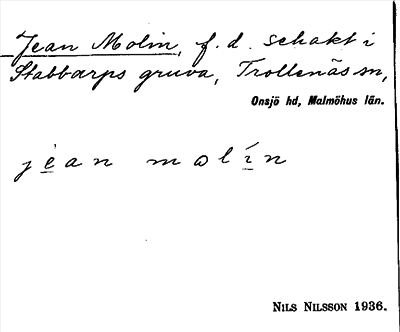 Jean Molin, f. d. schakt i
Stabbarps gruva, Trollenäs sn,
Onsjö hd, Malmöhus län.
jèan molín
NILS NILSSON 1936.